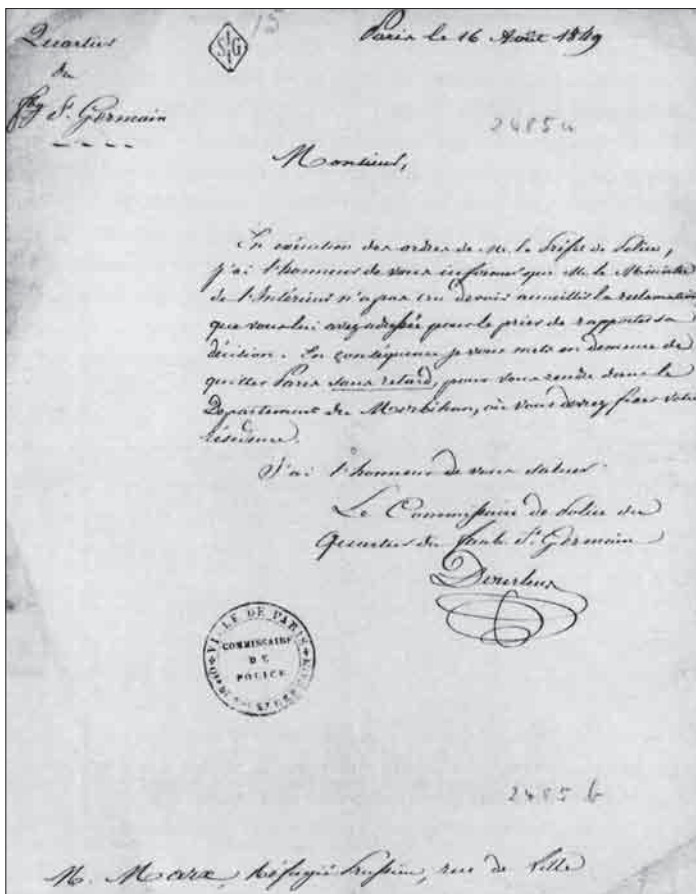 Quartier
du
fbg St. Germain
S I G
15
Paris le 16 Août 1849
2485 a
Monsieur,
En exécution des ordres de M. le Préfet de Police,
j'ai l'honneur de vous informer que M. le Ministre
de l'Intérieur n'a pas cru devoir accueillir la réclamation
que vous lui avez adressée pour le prier de rapporter sa
décision. En conséquence je vous mets en demeure de
quitter Paris sans retard, pour vous rendre dans le
Département du Morbihan, où vous devez fixer votre
résidence.
J'ai l'honneur de vous saluer
Le Commissaire de Police du
Quartier du faub. St. Germain
VILLE DE PARIS
COMMISSAIRE
DE
POLICE
2485 b
M. Marx, Réfugié Prussien, rue de Lille